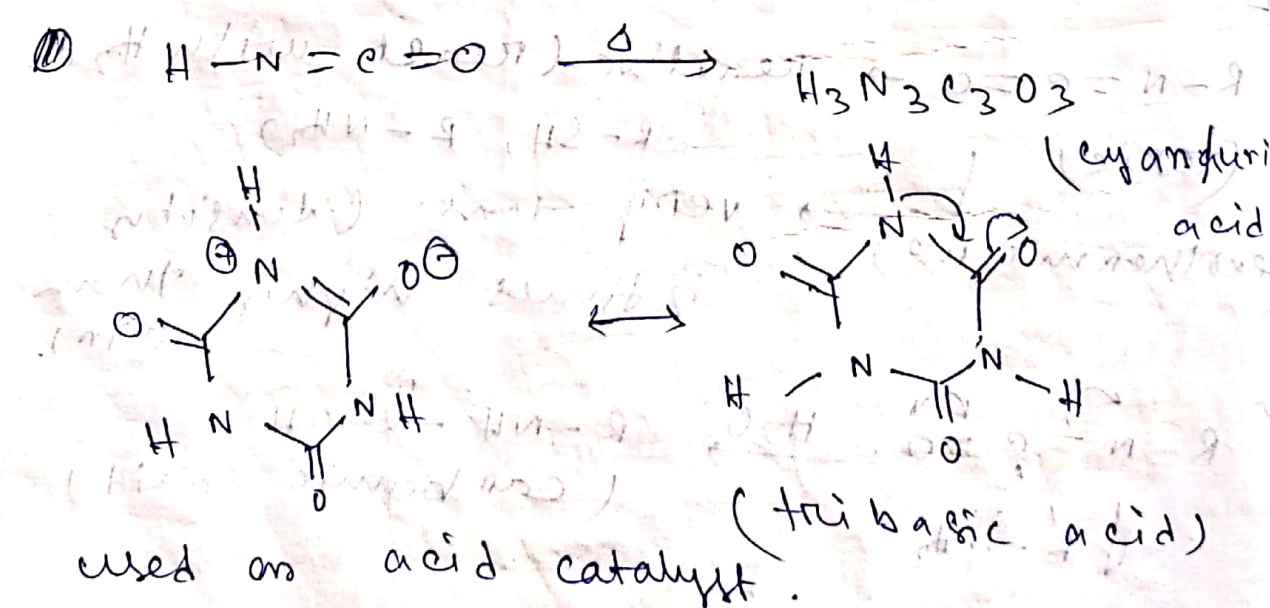 ⑪ H – N = C = O —Δ→ H₃N₃C₃O₃
(cyanuri
acid
H
⊕ N O⊖
O
H N N H
O
↔
H
N
O O
H N N H
O
(tribasic acid)
used as acid catalyst.